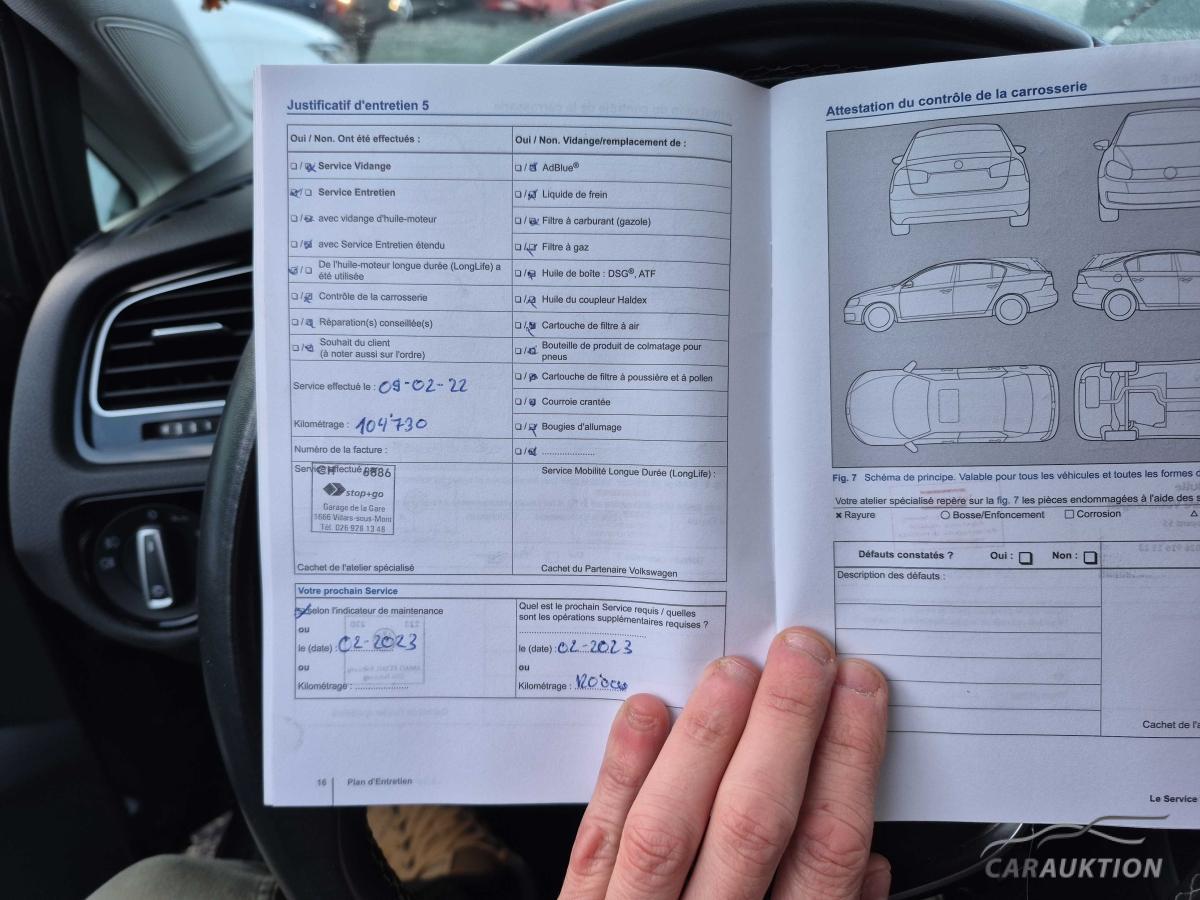 Justificatif d'entretien 5
Oui / Non. Ont été effectués :
❏ / ❏ Service Vidange
❏ / ❏ Service Entretien
❏ / ❏ avec vidange d'huile-moteur
❏ / ❏ avec Service Entretien étendu
❏ / ❏ De l'huile-moteur longue durée (LongLife) a
été utilisée
❏ / ❏ Contrôle de la carrosserie
❏ / ❏ Réparation(s) conseillée(s)
❏ / ❏ Souhait du client
(à noter aussi sur l'ordre)
Service effectué le : 09-02-22
Kilométrage : 104'730
Numéro de la facture :
Service effectué par
CH 6886
stop+go
Garage de la Gare
1666 Villars-sous-Mont
Tél. 026 928 13 48
Cachet de l'atelier spécialisé
Oui / Non. Vidange/remplacement de :
❏ / ❏ AdBlue®
❏ / ❏ Liquide de frein
❏ / ❏ Filtre à carburant (gazole)
❏ / ❏ Filtre à gaz
❏ / ❏ Huile de boîte : DSG®, ATF
❏ / ❏ Huile du coupleur Haldex
❏ / ❏ Cartouche de filtre à air
❏ / ❏ Bouteille de produit de colmatage pour
pneus
❏ / ❏ Cartouche de filtre à poussière et à pollen
❏ / ❏ Courroie crantée
❏ / ❏ Bougies d'allumage
❏ / ❏ .....................
Service Mobilité Longue Durée (LongLife) :
Cachet du Partenaire Volkswagen
Votre prochain Service
selon l'indicateur de maintenance
ou
le (date) : 02-2023
ou
Kilométrage : ...................
Quel est le prochain Service requis / quelles
sont les opérations supplémentaires requises ?
le (date) : 02-2023
ou
Kilométrage : 120'000
16 Plan d'Entretien
Attestation du contrôle de la carrosserie
Fig. 7 Schéma de principe. Valable pour tous les véhicules et toutes les formes d
Votre atelier spécialisé repère sur la fig. 7 les pièces endommagées à l'aide des s
× Rayure ○ Bosse/Enfoncement □ Corrosion △
Défauts constatés ? Oui : ❏ Non : ❏
Description des défauts :
Cachet de l'a
Le Service
CARAUKTION